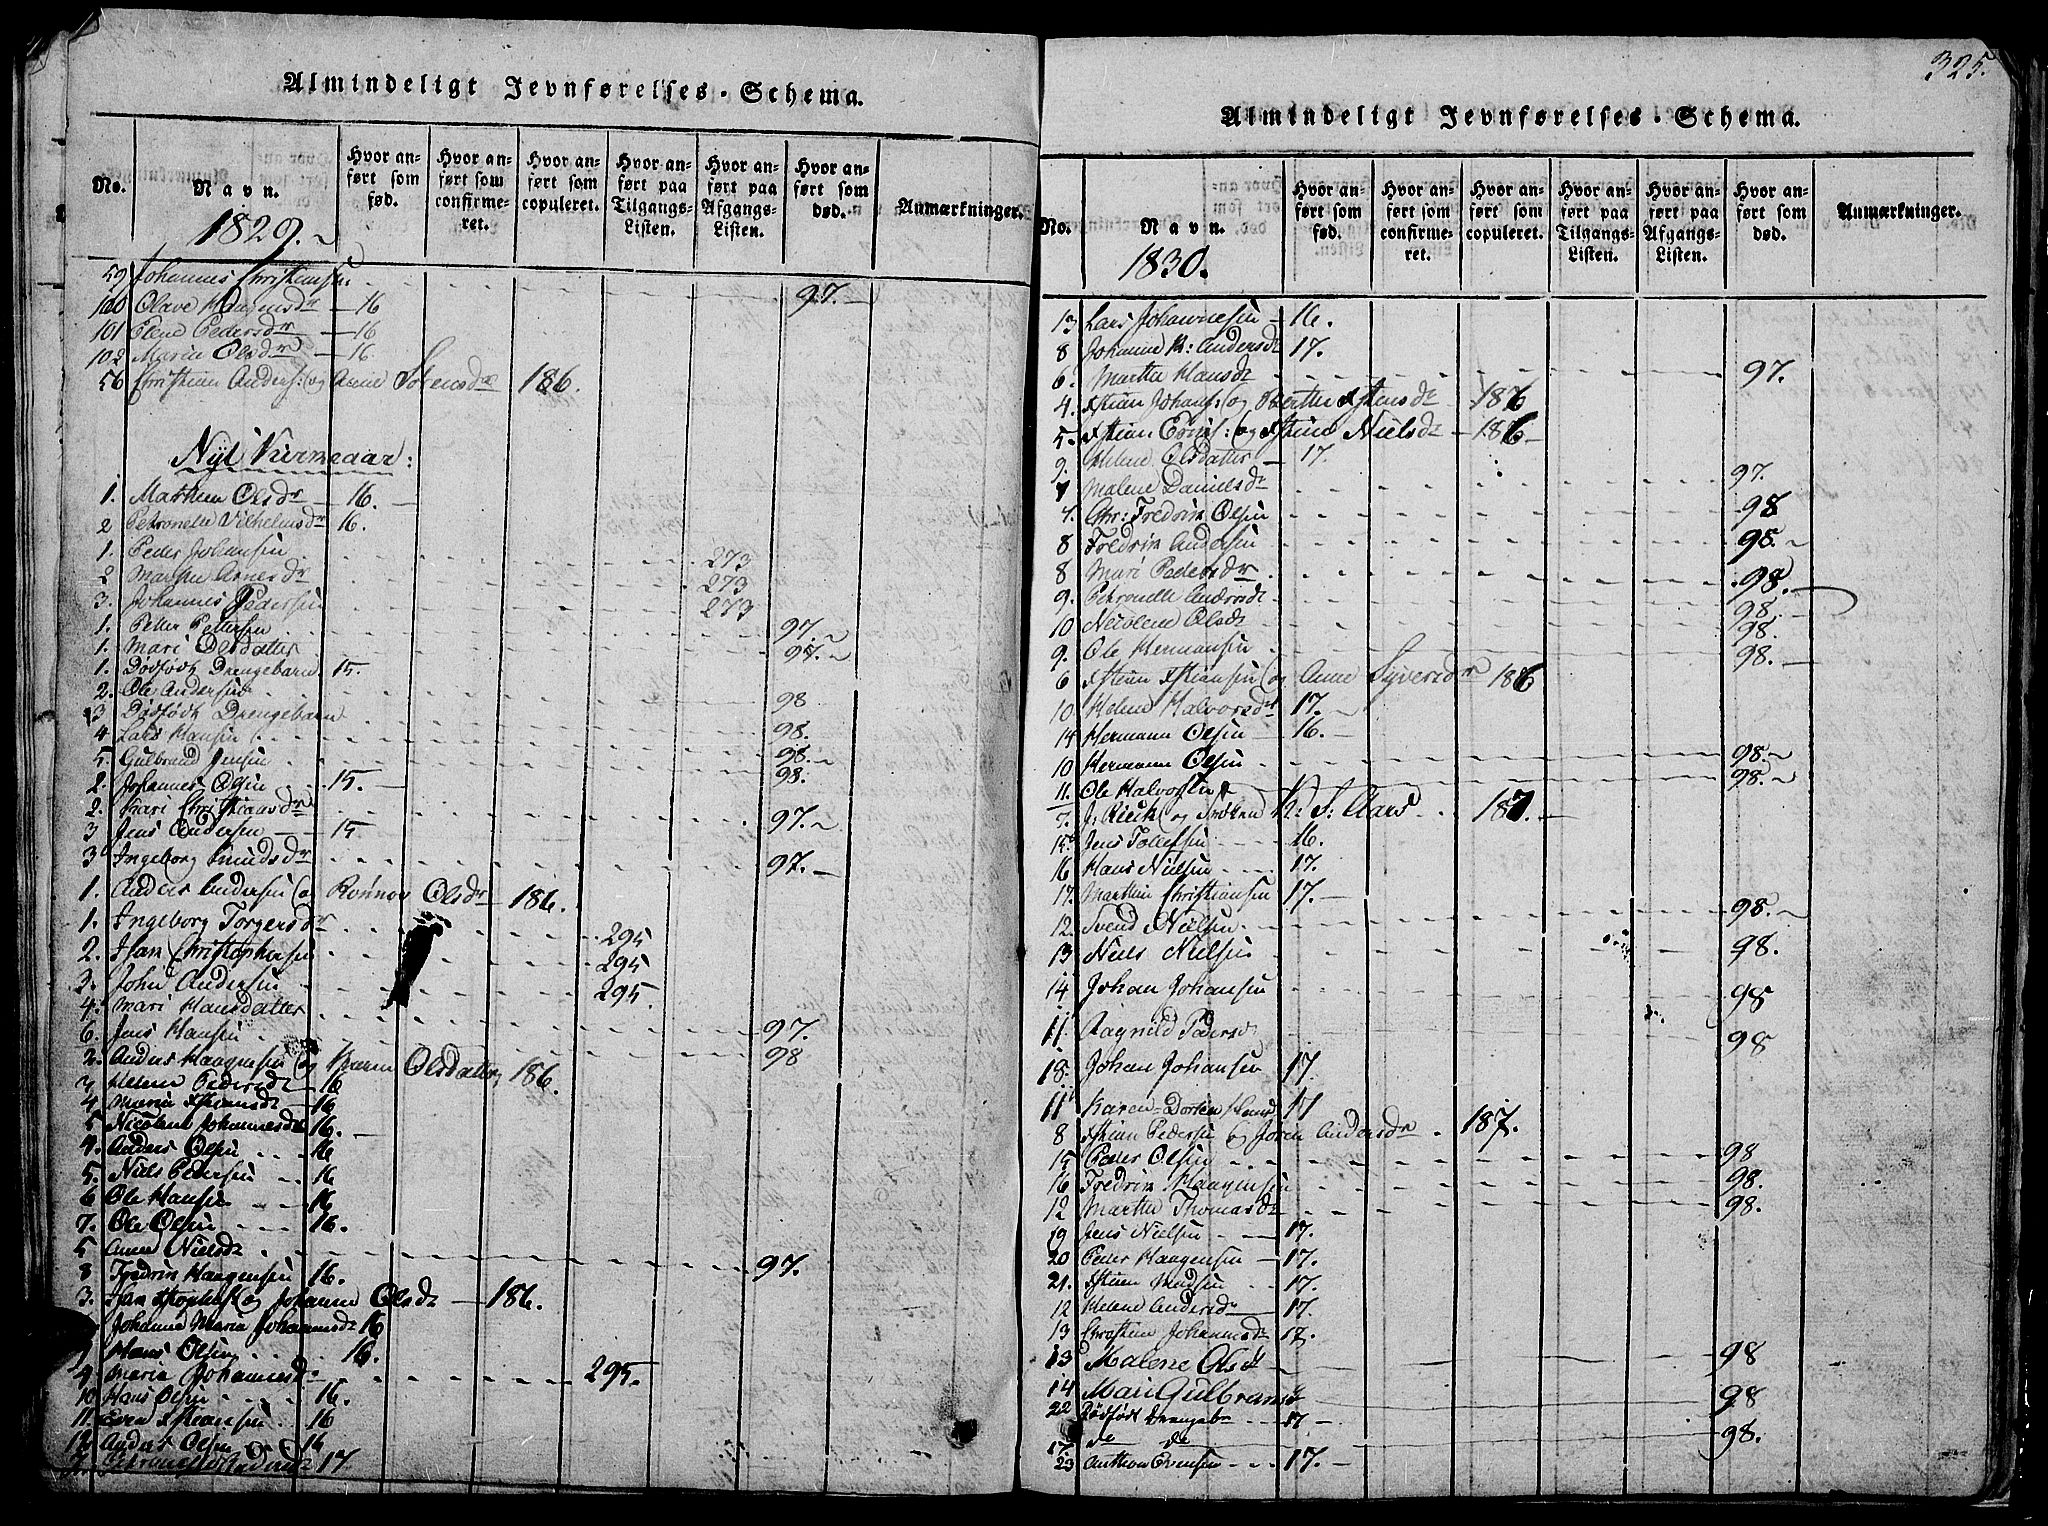 325.
Almindeligt Jevnførelses-Schema.
No.
Navn.
Hvor anført som fød.
Hvor anført som confirmeret.
Hvor anført som copuleret.
Hvor anført paa Tilgangs-Listen.
Hvor anført paa Afgangs-Listen.
Hvor anført som død.
Anmærkninger.
1829.
59 Johannes Christiansen 97.
100 Olave Haagensdr 16
101 Elene Pedersdr 16
102 Maria Olsdr 16
56 Christian Anders: og Anne Sørensdr 186.
Nyt Kirkeaar:
1. Mathea Olsdr 16.
2 Petronelle Vilhelmsdr 16.
1. Peder Johansen 273
2 Marthe Arnesdr 273
3. Johannes Pedersen 273
1. Petter Pettersen 97.
1. Mari Olsdatter 97.
1. Dødfødt Drengebarn 15.
2. Ole Andersen 98
3 Dødfødt Drengebarn
4 Lars Hansen 98.
5. Gulbrand Jensen 98.
2. Johannes Olsen 15.
2. Kari Christiansdr 97.
3 Jens Andersen 15
3 Ingeborg Knudsdr 97.
1. Anders Andersen og Rønnov Olsdr 186.
1. Ingeborg Torgersdr 295
2. Han Christophersen 295
3. John Andersen 295.
4. Mari Hansdatter
6. Jens Hansen 97.
2. Anders Haagensen og Karen Olsdatter 186. 98
3 Helene Pedersdr 16
4 Maria Xstiansdr 16
5 Nicoline Johannesdr 16.
4. Anders Olsen 16
5. Niels Pedersen 16
6 Ole Hansen 16
7. Ole Olsen 16.
5 Anne Nielsdr 97.
8 Fredrik Haagensen 16.
3. Han Xstophers: og Johanne Olsdr 186.
Johanne Maria Johannesdr 16
9 Hans Olsen 16.
4 Maria Johannesdr 295.
10 Hans Olsen 16.
11. Even Xstiansen 16
12 Anders Olsen 16
7. 17
Almindeligt Jevnførelses-Schema.
No.
Navn.
Hvor anført som fød.
Hvor anført som confirmeret.
Hvor anført som copuleret.
Hvor anført paa Tilgangs-Listen.
Hvor anført paa Afgangs-Listen.
Hvor anført som død.
Anmærkninger.
1830.
13 Lars Johannesen 16.
8 Johanne K: Andersdr 17.
6. Marthe Hansdr 97.
4. Xstian Johans: og Berthe Xstensdr 186
5. Xstian Erics: og Xstine Nielsdr 186
9. Helene Olsdatter 17.
7 Malene Danielsdr 97.
7. Chr: Fredrik Olsen 98
8 Fredrik Andersen 98.
8 Mari Pedersdr 98.
9. Petronelle Andersdr 98.
10 Nicolene Olsdr 98.
9. Ole Hermansen 98.
6 Xstian Xstiansen og Anne Syversdr 186
10 Helene Halvorsdr 17.
14 Hermann Olsen 16.
10 Hermann Olsen 98.
11. Ole Halvorsen 98.
7. J: Rieck og Frøken K: S: Aars 187.
15 Jens Tollefsen 16.
16 Hans Nielsen 17.
17. Marthin Christiansen 17.
12. Svend Nielsen 98.
13 Niels Nielsen 98.
14 Johan Johansen 98
11. Ragnild Pedersdr 98
18. Johan Johansen 17.
11 Karen Dorthea Hansdr 17
8 Xstian Pedersen og Joren Andersdr 187.
15 Peder Olsen 98
16 Fredrik Haagensen 98.
12 Marthe Thomasdr 98.
19 Jens Nielsen 17.
20 Peder Haagensen 17.
21. Xstian Knudsen 17.
12 Helene Andersdr 17.
13 Christine Johannesdr 17.
13 Malene Olsdr 98
14 Mari Gulbransdr 98
22 Dødfødt Drengeb 17
17. do do 98.
23 Anthon Evensen 17.